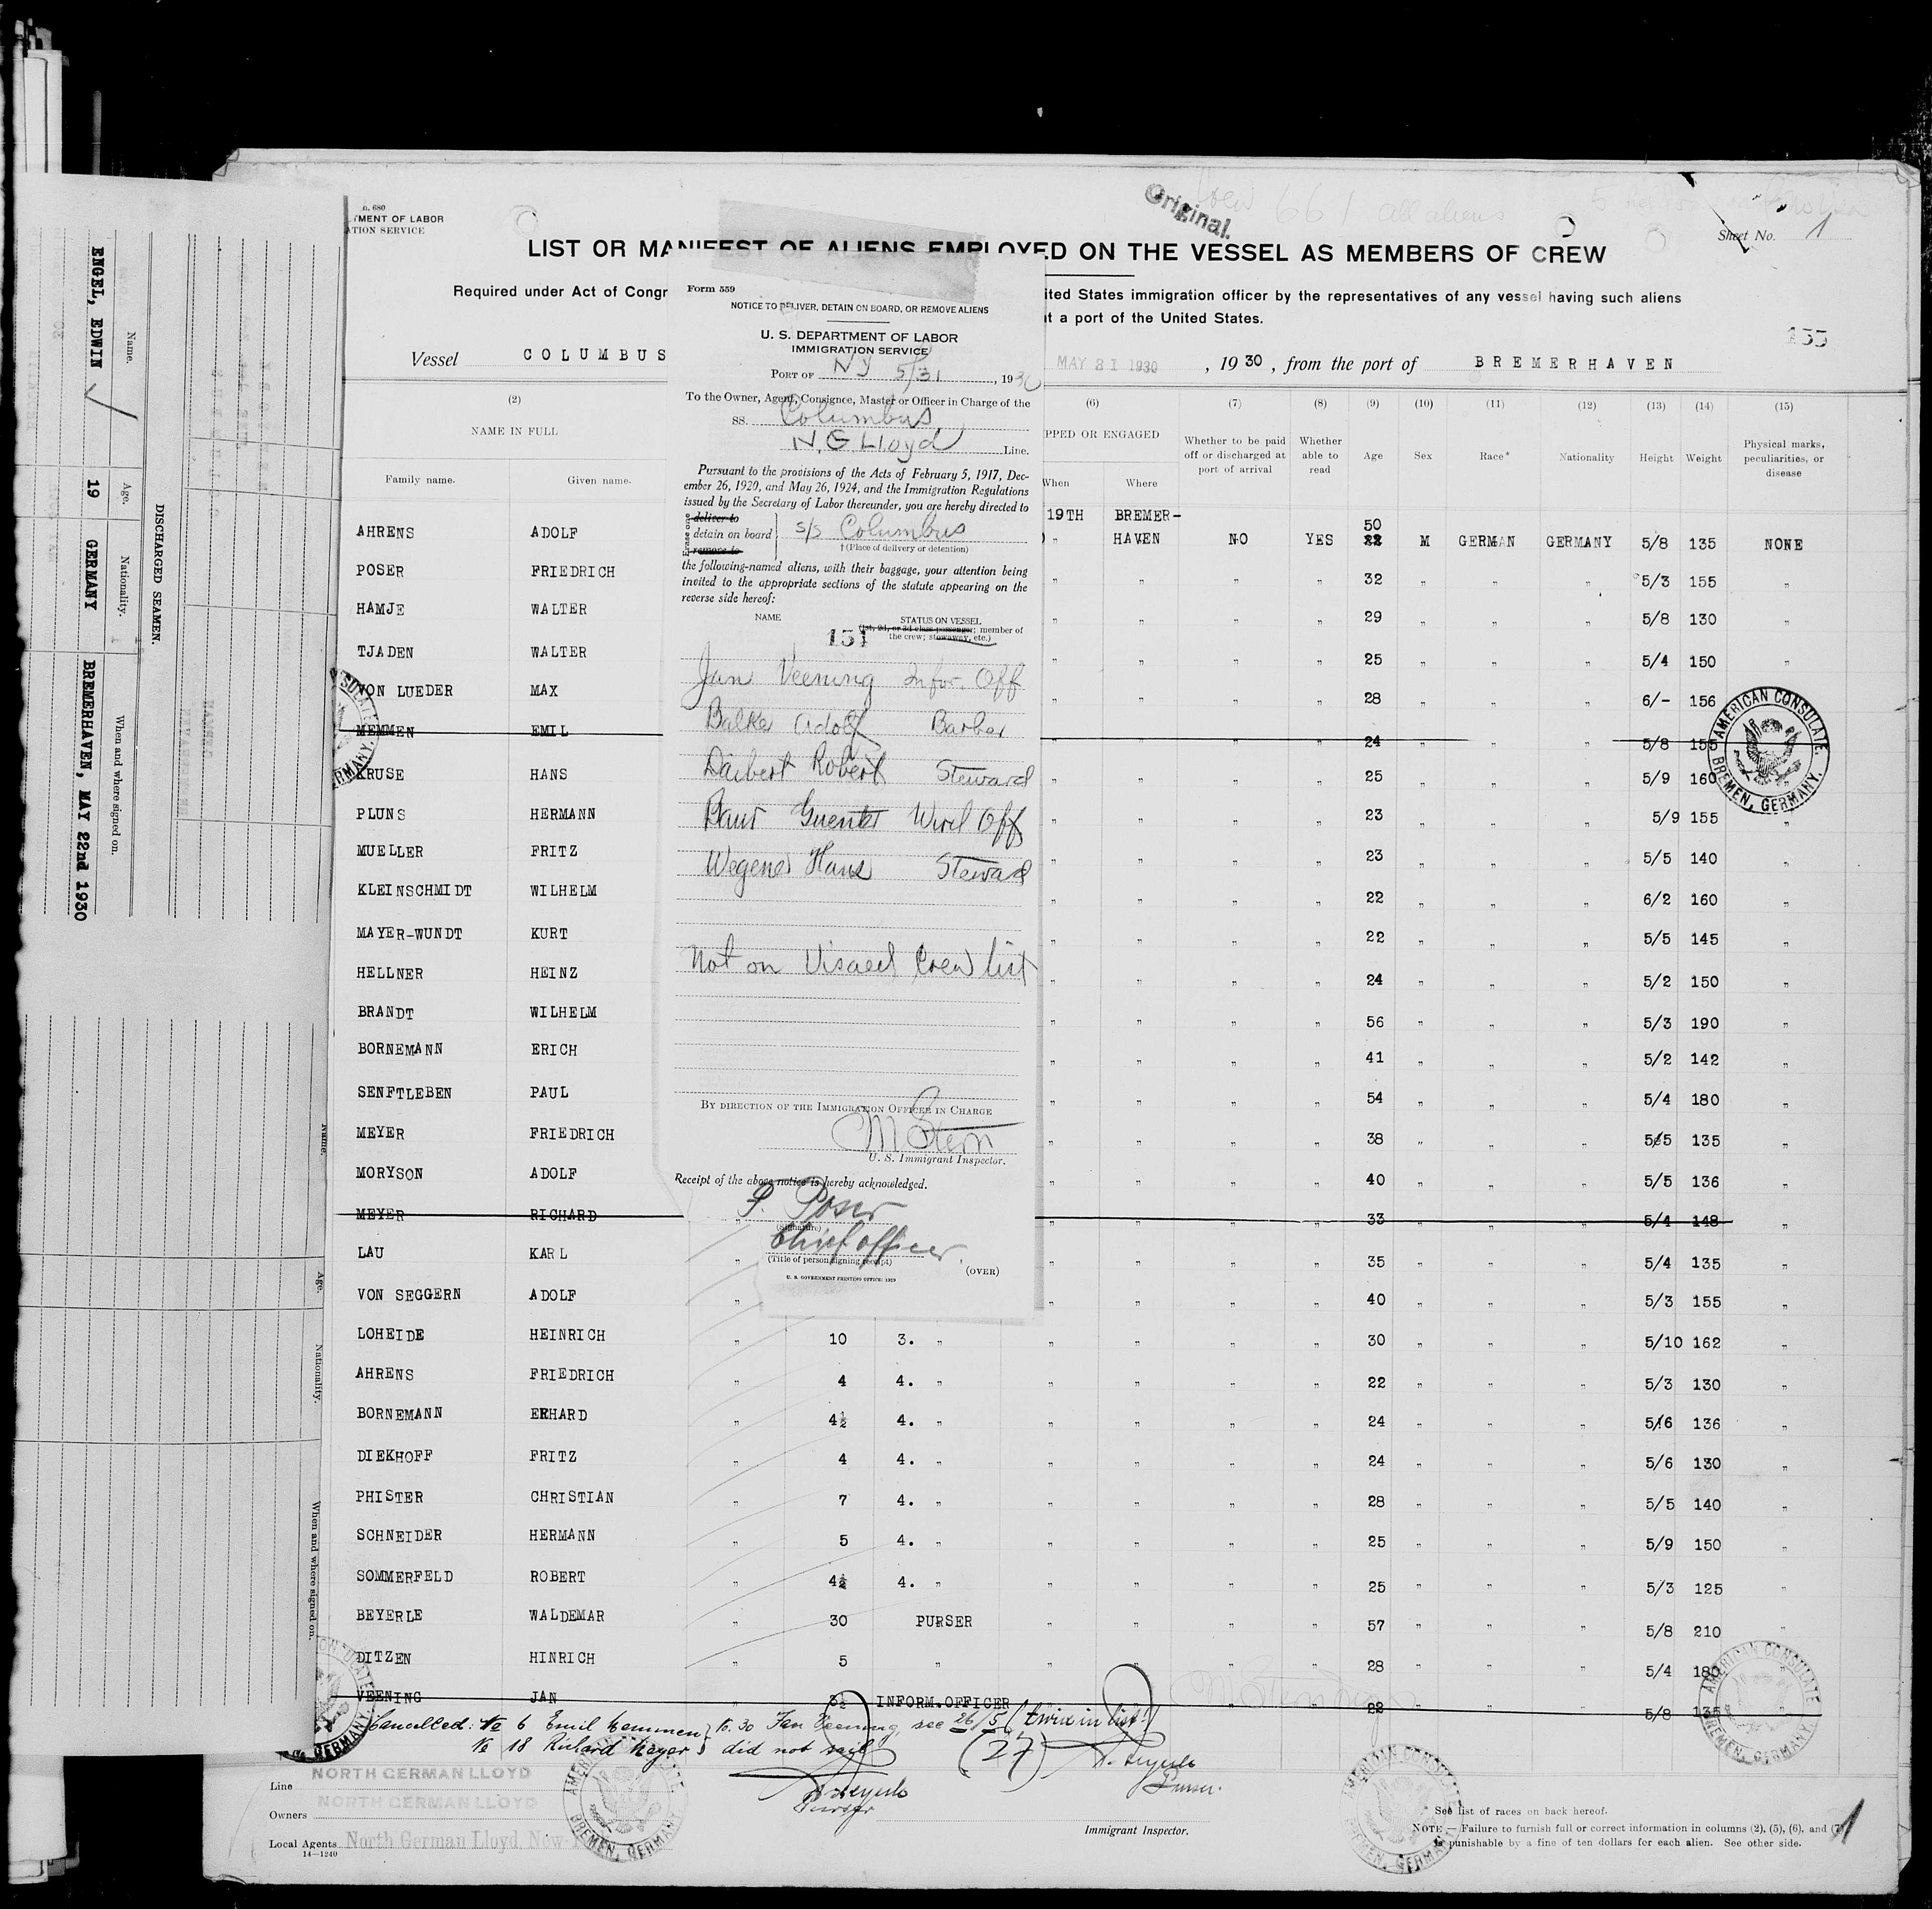 n. 680
TMENT OF LABOR
ATION SERVICE
Original.
661 all aliens
Sheet No. 1
LIST OR MANIFEST OF ALIENS EMPLOYED ON THE VESSEL AS MEMBERS OF CREW
Required under Act of Congr
ited States immigration officer by the representatives of any vessel having such aliens
at a port of the United States.
155
Vessel COLUMBUS
MAY 31 1930 , 1930 , from the port of BREMERHAVEN
(2) (6) (7) (8) (9) (10) (11) (12) (13) (14) (15)
NAME IN FULL
PPED OR ENGAGED
Whether to be paid off or discharged at port of arrival
Whether able to read
Age Sex Race* Nationality Height Weight
Physical marks, peculiarities, or disease
Family name. Given name. When Where
19TH BREMER-
AHRENS ADOLF „ HAVEN NO YES 50 22 M GERMAN GERMANY 5/8 135 NONE
POSER FRIEDRICH „ „ „ „ 32 „ „ „ 5/3 155 „
HAMJE WALTER „ „ „ „ 29 „ „ „ 5/8 130 „
TJADEN WALTER „ „ „ „ 25 „ „ „ 5/4 150 „
VON LUEDER MAX „ „ „ „ 28 „ „ „ 6/- 156
MEMMEN EMIL „ „ „ „ 24 „ „ „ 5/8 155
KRUSE HANS „ „ „ „ 25 „ „ „ 5/9 160
PLUNS HERMANN „ „ „ „ 23 „ „ „ 5/9 155 „
MUELLER FRITZ „ „ „ „ 23 „ „ „ 5/5 140 „
KLEINSCHMIDT WILHELM „ „ „ „ 22 „ „ „ 6/2 160 „
MAYER-WUNDT KURT „ „ „ „ 22 „ „ „ 5/5 145 „
HELLNER HEINZ „ „ „ „ 24 „ „ „ 5/2 150 „
BRANDT WILHELM „ „ „ „ 56 „ „ „ 5/3 190 „
BORNEMANN ERICH „ „ „ „ 41 „ „ „ 5/2 142 „
SENFTLEBEN PAUL „ „ „ „ 54 „ „ „ 5/4 180 „
MEYER FRIEDRICH „ „ „ „ 38 „ „ „ 5/5 135 „
MORYSON ADOLF „ „ „ „ 40 „ „ „ 5/5 136 „
MEYER RICHARD „ „ „ „ „ 33 „ „ „ 5/4 148 „
LAU KARL „ „ „ „ „ 35 „ „ „ 5/4 135 „
VON SEGGERN ADOLF „ „ „ „ „ 40 „ „ „ 5/3 155 „
LOHEIDE HEINRICH „ 10 3. „ „ „ „ „ 30 „ „ „ 5/10 162 „
AHRENS FRIEDRICH „ 4 4. „ „ „ „ „ 22 „ „ „ 5/3 130 „
BORNEMANN ERHARD „ 4½ 4. „ „ „ „ „ 24 „ „ „ 5/6 136 „
DIEKHOFF FRITZ „ 4 4. „ „ „ „ „ 24 „ „ „ 5/6 130 „
PHISTER CHRISTIAN „ 7 4. „ „ „ „ „ 28 „ „ „ 5/5 140 „
SCHNEIDER HERMANN „ 5 4. „ „ „ „ „ 25 „ „ „ 5/9 150 „
SOMMERFELD ROBERT „ 4½ 4. „ „ „ „ „ 25 „ „ „ 5/3 125 „
BEYERLE WALDEMAR „ 30 PURSER „ „ „ „ 57 „ „ „ 5/8 210 „
DITZEN HINRICH „ 5 „ „ „ „ „ 28 „ „ „ 5/4 180
VEENING JAN „ 3½ INFORM.OFFICER „ „ 22 „ „ „ 5/8 135
Cancelled: No 6 Emil Memmen } No. 30 Jan Veening, see 26/5 (twix in list!)
No 18 Richard Meyer } did not sail
(27)
Purser
Purser.
Line NORTH GERMAN LLOYD
Owners NORTH GERMAN LLOYD
Local Agents North German Lloyd, New-
14—1240
Immigrant Inspector.
* See list of races on back hereof.
NOTE.—Failure to furnish full or correct information in columns (2), (5), (6), and (7)
is punishable by a fine of ten dollars for each alien. See other side.
1
AMERICAN CONSULATE. BREMEN, GERMANY.
AMERICAN CONSULATE. BREMEN, GERMANY.
AMERICAN CONSULATE. BREMEN, GERMANY.
AMERICAN CONSULATE. BREMEN, GERMANY.
Form 559
NOTICE TO DELIVER, DETAIN ON BOARD, OR REMOVE ALIENS
U. S. DEPARTMENT OF LABOR
IMMIGRATION SERVICE
PORT OF NY 5/31 , 1930
To the Owner, Agent, Consignee, Master or Officer in Charge of the
SS. Columbus
N.G Lloyd Line.
Pursuant to the provisions of the Acts of February 5, 1917, Dec-
ember 26, 1920, and May 26, 1924, and the Immigration Regulations
issued by the Secretary of Labor thereunder, you are hereby directed to
Erase one
deliver to
detain on board s/s Columbus
remove to
†(Place of delivery or detention)
the following-named aliens, with their baggage, your attention being
invited to the appropriate sections of the statute appearing on the
reverse side hereof:
NAME STATUS ON VESSEL
(1st, 2d, or 3d class passenger; member of
the crew; stowaway, etc.)
151
Jan Veening Infor. Off
Balke Adolf Barber
Daibert Robert Steward
Baur Guenter Wirel Off
Wegener Hans Steward
Not on Visaed Crew list
BY DIRECTION OF THE IMMIGRATION OFFICER IN CHARGE
M Stern
U. S. Immigrant Inspector.
Receipt of the above notice is hereby acknowledged.
F. Poser
(Signature)
Chief officer.
(Title of person signing receipt)
(OVER)
U. S. GOVERNMENT PRINTING OFFICE: 1929
DISCHARGED SEAMEN.
Name. Age. Nationality. When and where signed on.
ENGEL, EDWIN 19 GERMANY BREMERHAVEN, MAY 22nd 1930
Name. Age. Nationality. When and where signed on.